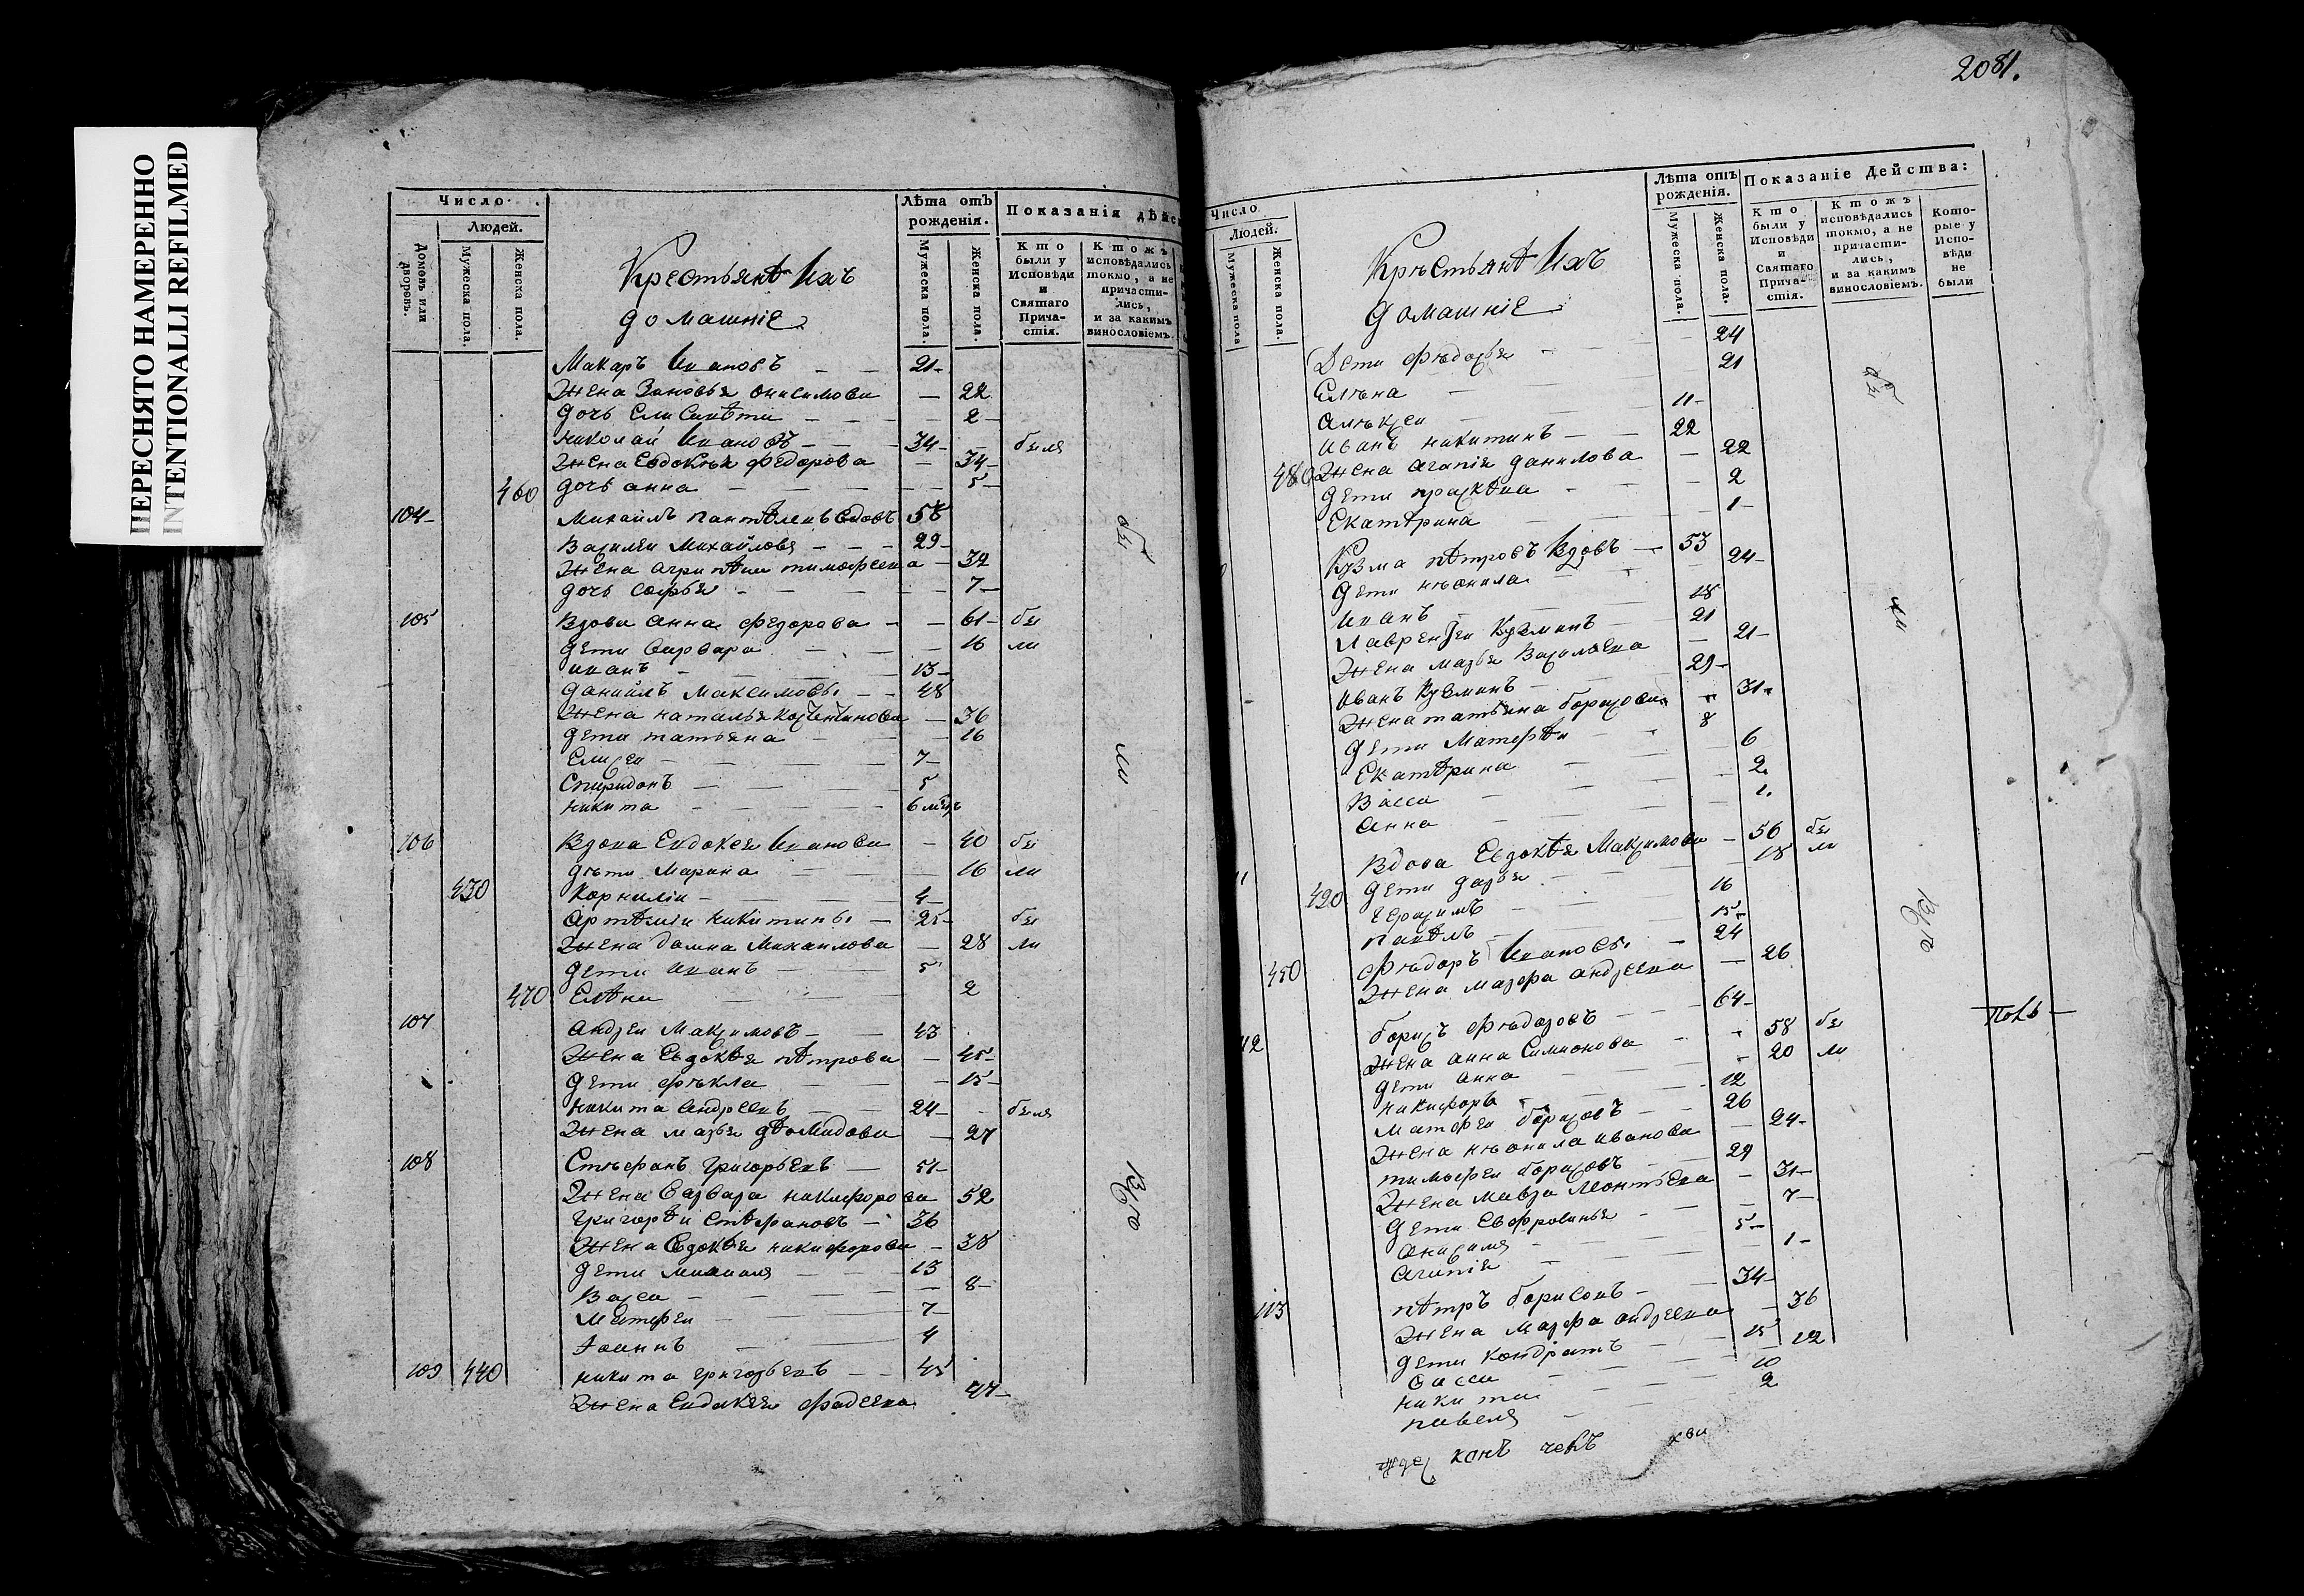 ПЕРЕСНЯТО НАМЕРЕННО
INTENTIONALLI REFILMED
Число
Людей.
Домовъ или дворовъ.
Мужеска пола.
Женска пола.
Крестьянѣ Ихъ
домашніе
Лѣта отъ рожденія.
Мужеска пола.
Женска пола.
Показанія дѣйс
Кто были у Исповѣди и Святаго Причастія.
Ктожъ исповѣдались токмо, а не причастились, и за какимъ винословіемъ.
Макаръ Ивановъ 21
Жена Зановья Онисимова 22
дочь Елисавѣта 2
Николай Ивановъ 34 быля
Жена Евдокѣя Федорова 34
460 дочь анна 5
104 Михаилъ Пантѣлеевъ вдовъ 58
Василеи Михайловъ 29
Жена агрипѣна тимофеева 32
дочь Софья 7
105 Вдова анна Федорова 61 бы
дети варвара 16 ли
иванъ 13
данийлъ Максимовъ 48
Жена наталья 36
дети татьяна 16
Елисеи 7
Спиридонъ 5
никита 6
106 Вдова Евдокея Иванова 40 бы
дѣти Марина 16 ли
430 Корнилiи 4
Артѣмiи Никитинъ 25 бы
Жена домна Михаилова 28 ли
дети иванъ 5
470 Елѣна 2
107 андреи Максимовъ 43
Жена Евдокѣя пѣтрова 45
дети фѣкла 15
никита андреевъ 24 быля
Жена марья дѣомидова 27
108 Стѣфанъ григорьевъ 51
Жена варвара никифорова 52
григорѣи стѣфановъ 36
Жена Евдокѣя никифорова 38
дети михаила 13
Васса 8
Матфеи 7
Iоаннъ 4
109 440 никита григорьевъ 45
Жена Евдокея фадеева 47
бы
ли
всѣ
2081.
Число
Людей.
Мужеска пола
Женска пола.
Крѣстьянѣ Ихъ
домашніе
Лѣта отъ рожденія.
Мужеска пола.
Женска пола.
Показаніе Действа:
Кто были у Исповѣди и Святаго Причастія.
Ктожъ исповѣдались токмо, а не причастились, и за какимъ винословіемъ.
Которые у Исповѣди не были
Дети Фѣдосья 24
Елѣна 21
алѣксеи 11
иванъ никитинъ 22
480 Жена агапiя данилова 22
дети прасковиа 2
Екатѣрина 1
Кузма пѣтровъ вдовъ 53
дети нѣонила 24
иванъ 18
лаврентеи Кузминъ 21
Жена марья Васильева 21
иванъ Кузминъ 29
Жена татьяна борисова 31
дети Матфѣи 8
Екатѣрина 6
Васса 2
анна 1
11 Вдова Евдокѣя Максимова 56 бы
490 дети дарья 18 ли
герасимъ 16
павѣлъ 15
450 Фѣдоръ Ивановъ 24
Жена марфа андреева 26
12 борисъ Фѣдоровъ 64
Жена анна Симионова 58 бы
дети анна 20 ли
никифоръ 12
матфеи борисовъ 26
Жена нѣонила иванова 24
тимофеи борисовъ 29
Жена мавра леонтьева 31
дети Евфросинья 7
анисимя 5
агапiя 1
113 пѣтръ борисовъ 34
Жена марфа андреева 36
дети кондратъ 15
васса 12
никита 10
павеля 2
бы
ли